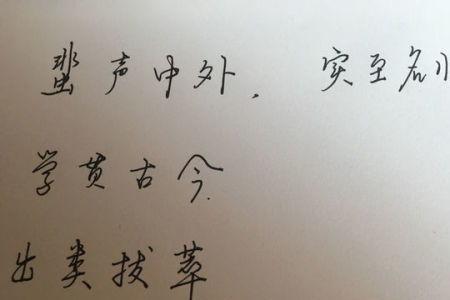 蜚声中外, 实至名归
学贯古今
出类拔萃